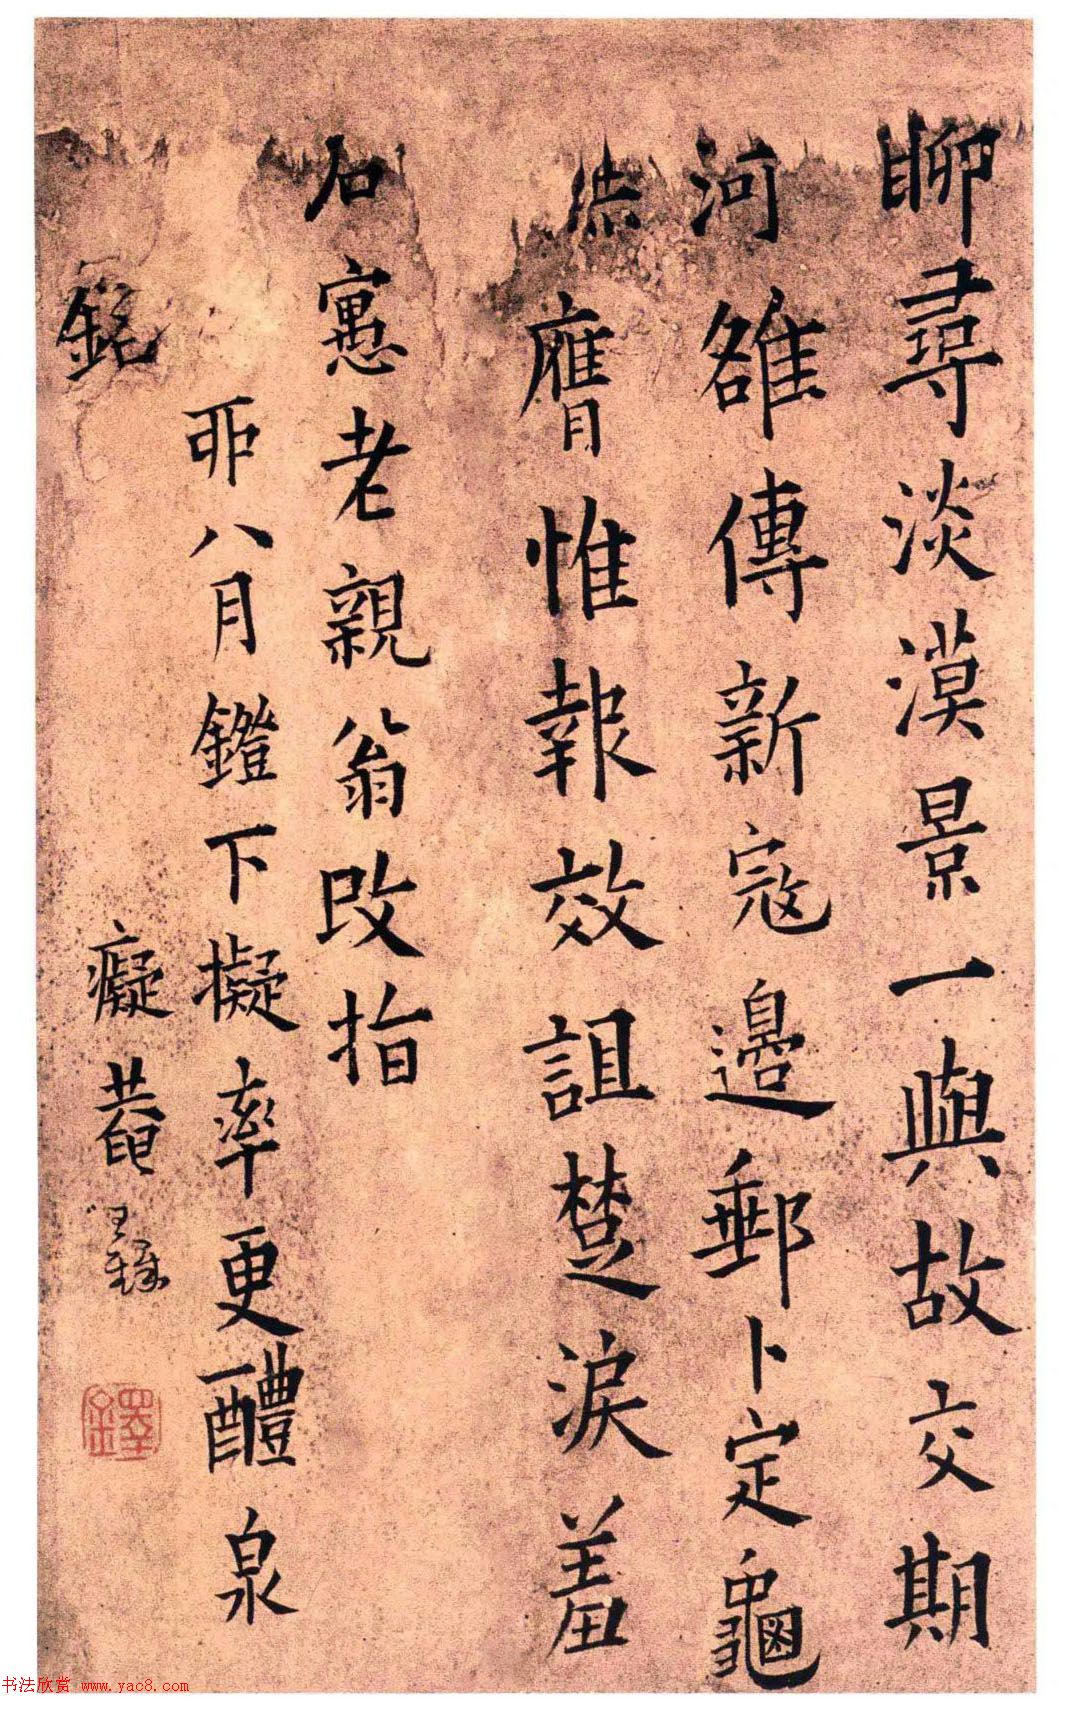 聊尋淡漠景一與故交期
河雒傳新寇邊郵卜定龜
膺惟報效詛楚淚羞
石寓老親翁改指
八月鐙下擬率更醴泉
銘
癡菴王鐸
鐸
书法欣赏 www.yac8.com